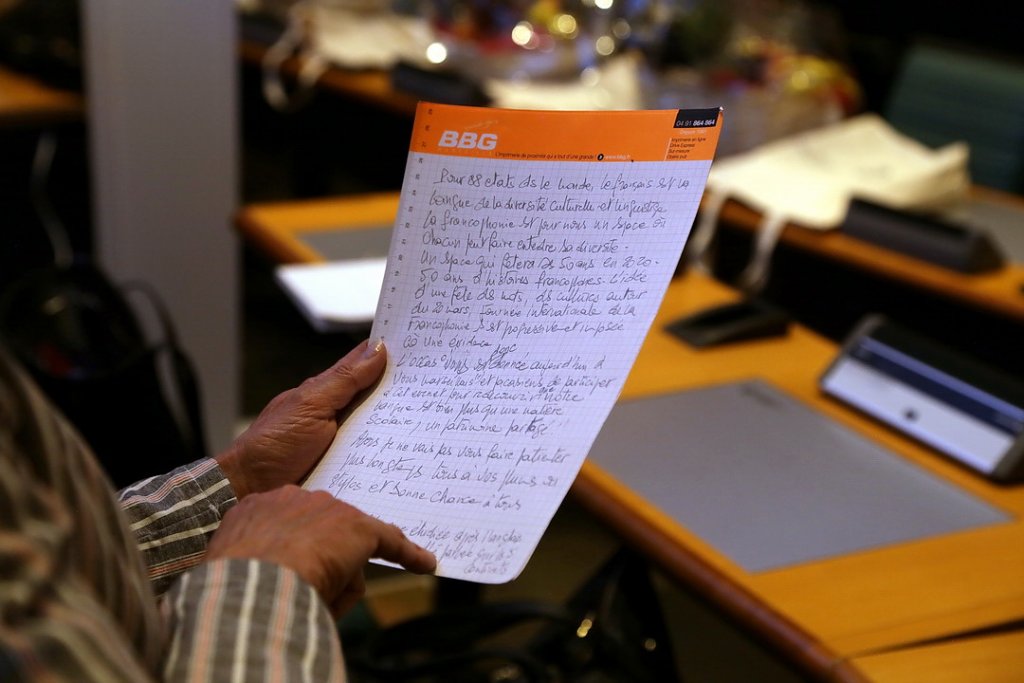 04 91 864 864
BBG
L'imprimerie de proximité qui a tout d'une grande www.bbg.fr
Pour 88 etats ds le monde, le français est la
langue, de la diversité culturelle et linguistique
la francophonie est pour nous un espace où
chacun peut faire entendre sa diversité.
Un espace qui fêtera ses 50 ans en 2020.
50 ans d'histoires francophones. L'idée
d'une fête des mots, des cultures autour
du 20 mars, journée internationale de la
francophonie s'est progressive et imposée
co une evidence
donc
L'occasion vous est donnée aujourd'hui à
vous marseillais et de participer
à cet evenement pour redecouvrir que notre
langue est bien plus qu'une matière
scolaire, un patrimoine partagé.
Mais je ne vais pas vous faire patienter
plus longtemps tous à vos plumes ou
stylos et bonne chance à tous
étudiée après l'anglais
parlée sur les 5
continents